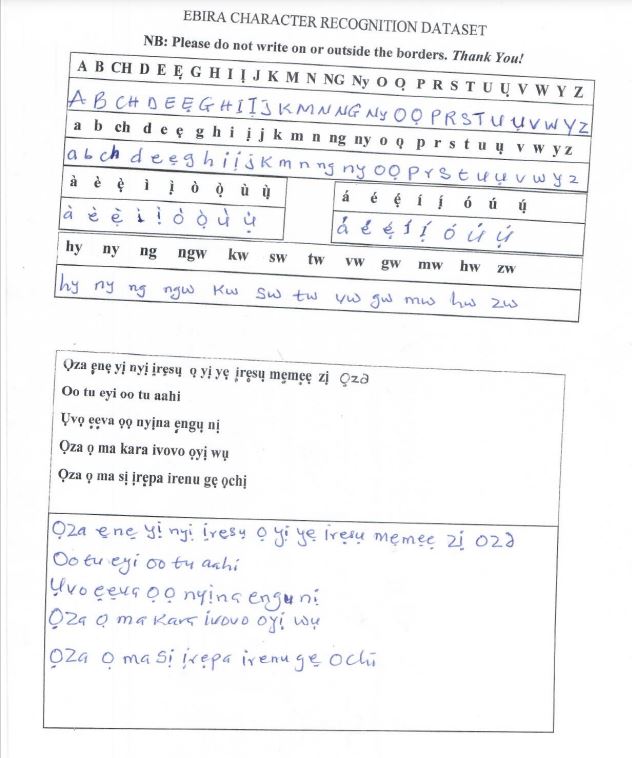 EBIRA CHARACTER RECOGNITION DATASET
NB: Please do not write on or outside the borders. Thank You!
A B CH D E Ẹ G H I Ị J K M N NG Ny O Ọ P R S T U Ụ V W Y Z
A B CH D E Ẹ G H I Ị J K M N NG Ny O Ọ P R S T U Ụ V W Y Z
a b ch d e ẹ g h i ị j k m n ng ny o ọ p r s t u ụ v w y z
a b ch d e ẹ g h i ị j k m n ng ny o ọ p r s t u ụ v w y z
à è ẹ̀ ì ị̀ ò ọ̀ ù ụ̀
á é ẹ́ í ị́ ó ú ụ́
à è ẹ̀ ì ị̀ ò ọ̀ ù ụ̀
á é ẹ́ í ị́ ó ú ụ́
hy ny ng ngw kw sw tw vw gw mw hw zw
hy ny ng ngw kw sw tw vw gw mw hw zw
Ọza ẹnẹ yị nyị ịrẹsụ ọ yị yẹ ịrẹsụ mẹmẹẹ zị Ọzǝ
Oo tu eyi oo tu aahi
Ụvọ ẹẹva ọọ nyịna ẹngụ nị
Ọza ọ ma kara ivovo ọyị wụ
Ọza ọ ma sị ịrẹpa irenu gẹ ọchị
Ọza ẹnẹ yị nyị ịresụ ọ yị yẹ irẹsụ mẹmẹẹ zị ozǝ
Oo tu eyi oo tu aahi
Ụvo ẹẹva ọọ nyịna engu nị
Ọza ọ ma kara ivovo oyị wụ
Ọza ọ ma sị ịrẹpa irenu gẹ ochi